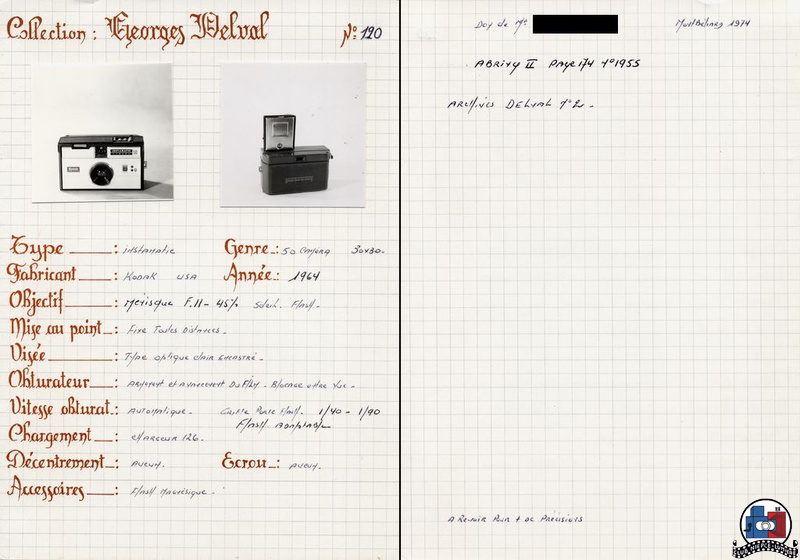 Collection : Georges Delval Nº 120
Type : Instamatic Genre : 50 Camera 30x30.
Fabricant : Kodak USA Année : 1964
Objectif : F.11 - 45% Soleil. Flash.
Mise au point : Fixe Toutes Distances.
Visée : Type optique clair encastré.
Obturateur : Armement et avancement Du Film. Blocage Vue.
Vitesse obturat : Automatique. 1/40 - 1/90
Flash
Chargement : chargeur 126.
Décentrement : aucun. Ecrou : aucun.
Accessoires : Flash Magnésique.
Don de Mr Montbéliard 1974
ABRING II Page 174 Nº 1955
Archives DELVAL Nº 2.
A Revoir Pour + de Précisions